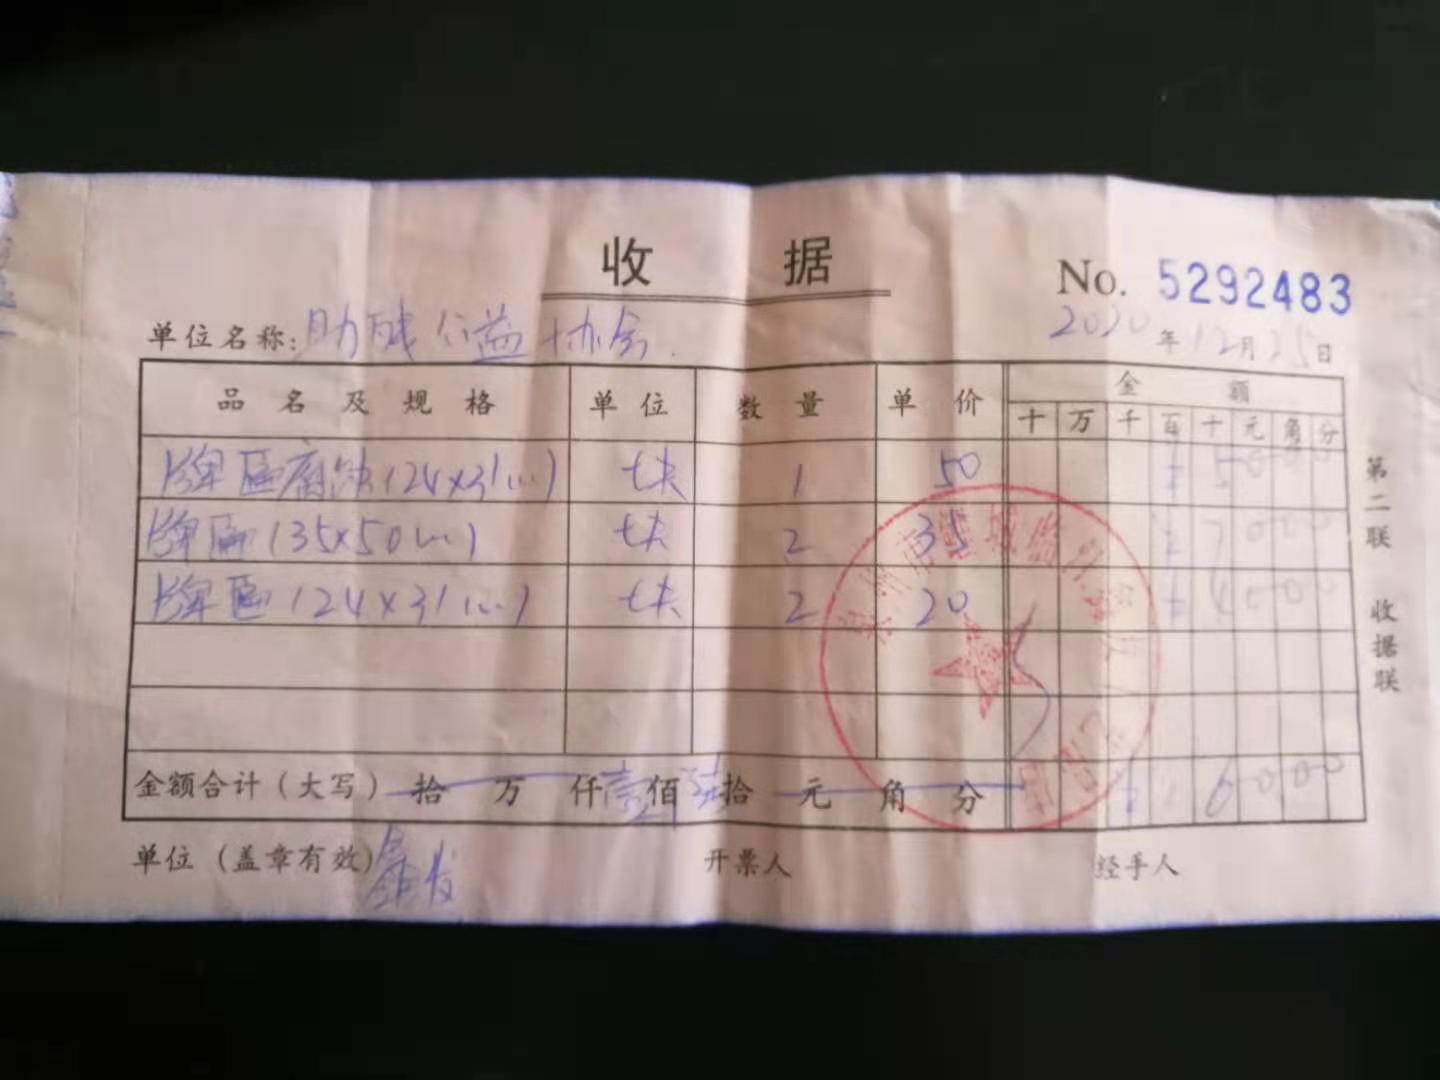 收据
No. 5292483
单位名称: 助残公益协会.
2020年12月25日
品名及规格 单位 数量 单价 金额
十 万 千 百 十 元 角 分
牌匾腐蚀(24×31cm) 块 1 50 5000
牌匾(35×50cm) 块 2 35 7000
牌匾(24×31cm) 块 2 20 4000
金额合计(大写) 拾 万 仟壹佰陆拾 元 角 分 16000
单位(盖章有效) 鑫发 开票人 经手人
第二联 收据联